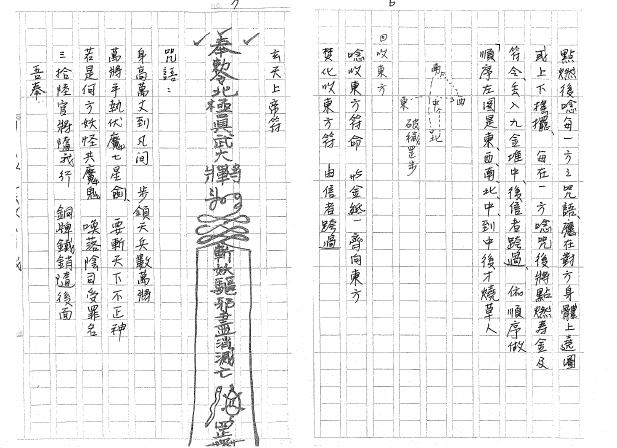 6
點燃後唸每一方之咒語，應在對方身體上遶圈
或上下搖擺、每在一方唸咒後將點燃壽金及
符令丟入九金堆中，後信者跨過、依順序做
順序左圖是東、西、南、北、中，到中後才燒草人
南 西
中
東 北
破穢罡步
回收東方
唸收東方符命 唸金紙一齊向東方
焚化收東方符 由信者跨過
7
玄天上帝符
奉勅令北極真武大將軍 斬妖驅邪盡消滅亡 罡
咒語：
身高萬丈到凡間 步領天兵數萬將
萬將手執伏魔七星劍 要斬天下不正神
若是何方妖怪共魔鬼 喚落陰司受罪名
三拾陸官將隨我行 銅牌鐵鎖隨後面
吾奉